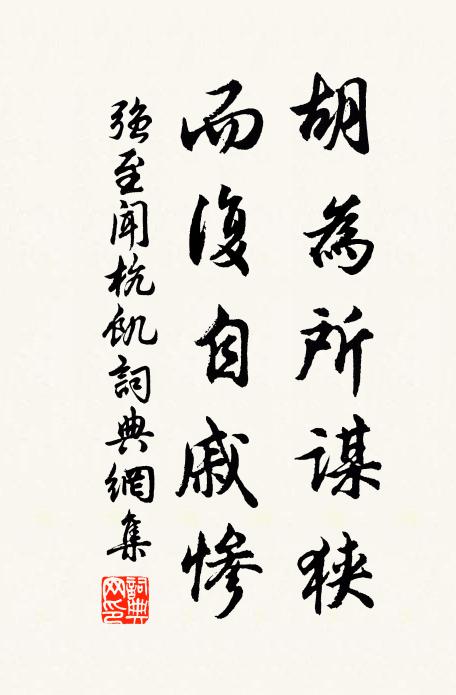 胡為所謀狹
而復自戚慘
強至聞杭飢詞典網集
詞典網印